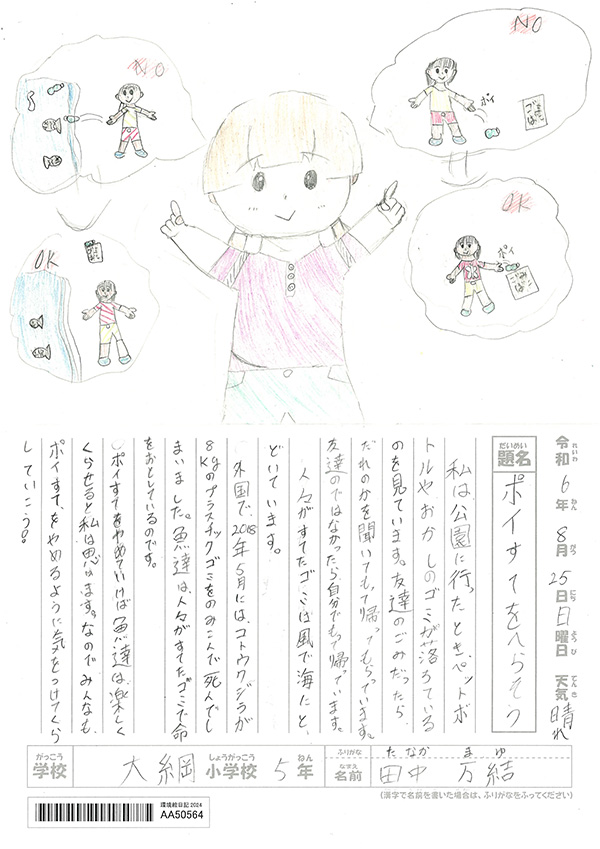 NO
NO
ポイ
ごみばこ
OK
OK
ポイ
ごみばこ
令和6年8月25日日曜日 天気 晴れ
れいわ ねん がつ にち にち ようび てんき
だいめい
題名
ポイすてをへらそう
私は、公園に行ったとき、ペットボ
トルや、おかしのゴミが落ちている
のを見ています。友達のごみだったら、
だれのかを聞いてもって帰ってもらっています。
友達のではなかったら、自分でもって帰っています。
人々がすてたゴミは風で海だと、
どいています。
外国で、2018年5月には、コトウクジラが
8kgのプラスチックゴミをのみこんで死んでし
まいました。魚達は、人々がすてたゴミで命
をおとしているのです。
ポイすてをやめていけば魚達は、楽しく
くらせると私は思います。なのでみんなも、
ポイすて、をやめるように気をつけてくら
していこう!
がっこう しょうがっこう ねん
学校 大綱小学校5年
ふりがな たなか まゆ
なまえ
名前 田中 万結
(漢字で名前を書いた場合は、ふりがなをふってください)
環境絵日記2024
AA50564